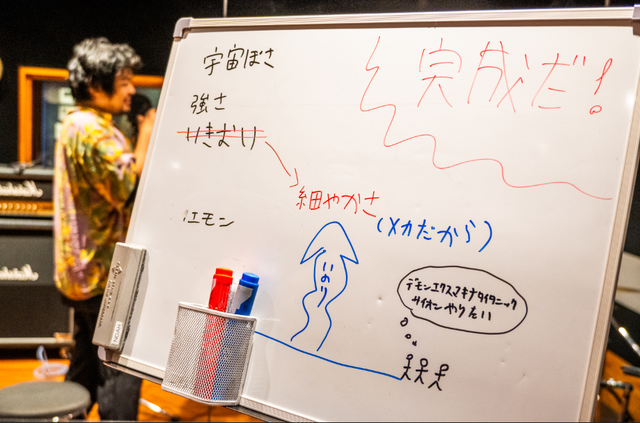 宇宙ぽさ
強さ
いきおい
細やかさ
(メカだから)
江モン
いのり
完成だ!
デモンエクスマキナタイタニック
サイオンやりたい